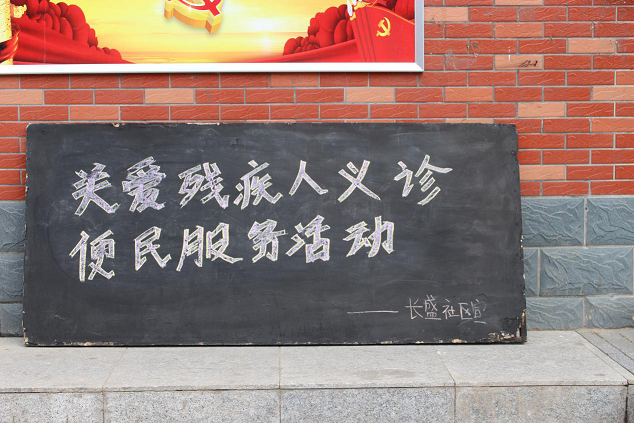 关爱残疾人义诊
便民服务活动
——长盛社区宣